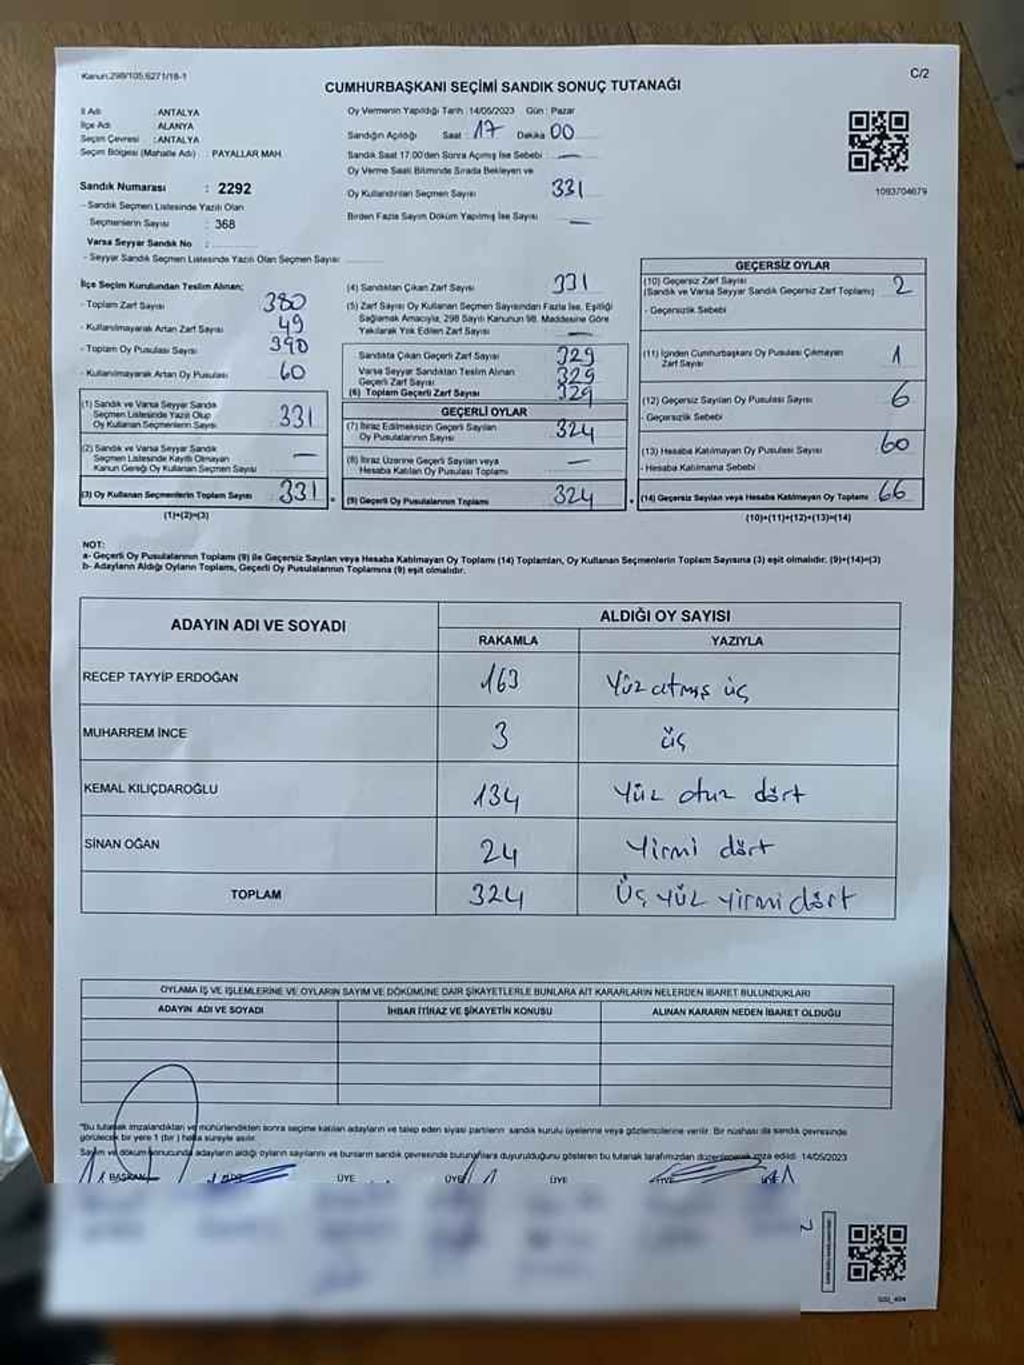 Kanun:298/105,6271/18-1
C/2
CUMHURBAŞKANI SEÇİMİ SANDIK SONUÇ TUTANAĞI
İl Adı : ANTALYA
İlçe Adı : ALANYA
Seçim Çevresi : ANTALYA
Seçim Bölgesi (Mahalle Adı) : PAYALLAR MAH.
Sandık Numarası : 2292
- Sandık Seçmen Listesinde Yazılı Olan
Seçmenlerin Sayısı : 368
Varsa Seyyar Sandık No :
- Seyyar Sandık Seçmen Listesinde Yazılı Olan Seçmen Sayısı
Oy Vermenin Yapıldığı Tarih : 14/05/2023 Gün : Pazar
Sandığın Açıldığı Saat : 17 Dakika 00
Sandık Saat 17.00'den Sonra Açılmış İse Sebebi : —
Oy Verme Saati Bitiminde Sırada Bekleyen ve
Oy Kullandırılan Seçmen Sayısı 331
Birden Fazla Sayım Döküm Yapılmış İse Sayısı —
1093704679
İlçe Seçim Kurulundan Teslim Alınan;
- Toplam Zarf Sayısı 380
- Kullanılmayarak Artan Zarf Sayısı 49
- Toplam Oy Pusulası Sayısı 390
- Kullanılmayarak Artan Oy Pusulası 60
(1) Sandık ve Varsa Seyyar Sandık
Seçmen Listesinde Yazılı Olup
Oy Kullanan Seçmenlerin Sayısı 331
(2) Sandık ve Varsa Seyyar Sandık
Seçmen Listesinde Kayıtlı Olmayan
Kanun Gereği Oy Kullanan Seçmen Sayısı —
(3) Oy Kullanan Seçmenlerin Toplam Sayısı 331
(1)+(2)=(3)
(4) Sandıktan Çıkan Zarf Sayısı 331
(5) Zarf Sayısı Oy Kullanan Seçmen Sayısından Fazla İse, Eşitliği
Sağlamak Amacıyla, 298 Sayılı Kanunun 98. Maddesine Göre
Yakılarak Yok Edilen Zarf Sayısı —
Sandıkta Çıkan Geçerli Zarf Sayısı 329
Varsa Seyyar Sandıktan Teslim Alınan
Geçerli Zarf Sayısı 329
(6) Toplam Geçerli Zarf Sayısı 329
GEÇERLİ OYLAR
(7) İtiraz Edilmeksizin Geçerli Sayılan
Oy Pusulalarının Sayısı 324
(8) İtiraz Üzerine Geçerli Sayılan veya
Hesaba Katılan Oy Pusulası Toplamı —
(9) Geçerli Oy Pusulalarının Toplamı 324
GEÇERSİZ OYLAR
(10) Geçersiz Zarf Sayısı
(Sandık ve Varsa Seyyar Sandık Geçersiz Zarf Toplamı) 2
- Geçersizlik Sebebi
(11) İçinden Cumhurbaşkanı Oy Pusulası Çıkmayan
Zarf Sayısı 1
(12) Geçersiz Sayılan Oy Pusulası Sayısı 6
-Geçersizlik Sebebi
(13) Hesaba Katılmayan Oy Pusulası Sayısı 60
- Hesaba Katılmama Sebebi
(14) Geçersiz Sayılan veya Hesaba Katılmayan Oy Toplamı 66
(10)+(11)+(12)+(13)=(14)
NOT:
a- Geçerli Oy Pusulalarının Toplamı (9) ile Geçersiz Sayılan veya Hesaba Katılmayan Oy Toplamı (14) Toplamları, Oy Kullanan Seçmenlerin Toplam Sayısına (3) eşit olmalıdır. (9)+(14)=(3)
b- Adayların Aldığı Oyların Toplamı, Geçerli Oy Pusulalarının Toplamına (9) eşit olmalıdır.
ADAYIN ADI VE SOYADI
ALDIĞI OY SAYISI
RAKAMLA YAZIYLA
RECEP TAYYİP ERDOĞAN 163 Yüz atmış üç
MUHARREM İNCE 3 üç
KEMAL KILIÇDAROĞLU 134 Yüz otuz dört
SİNAN OĞAN 24 Yirmi dört
TOPLAM 324 Üç yüz yirmi dört
OYLAMA İŞ VE İŞLEMLERİNE VE OYLARIN SAYIM VE DÖKÜMÜNE DAİR ŞİKAYETLERLE BUNLARA AİT KARARLARIN NELERDEN İBARET BULUNDUKLARI
ADAYIN ADI VE SOYADI İHBAR İTİRAZ VE ŞİKAYETİN KONUSU ALINAN KARARIN NEDEN İBARET OLDUĞU
"Bu tutanak imzalandıktan ve mühürlendikten sonra seçime katılan adayların ve talep eden siyasi partilerin sandık kurulu üyelerine veya gözlemcilerine verilir. Bir nüshası da sandık çevresinde
görülecek bir yere 1 (bir) hafta süreyle asılır.
Sayım ve döküm sonucunda adayların aldığı oyların sayılarını ve bunların sandık çevresinde bulunanlara duyurulduğunu gösteren bu tutanak tarafımızdan düzenlenerek imza edildi. 14/05/2023
BAŞKAN ÜYE ÜYE ÜYE ÜYE